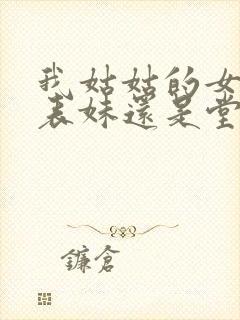 我姑姑的女
表妹還是堂
鐮倉